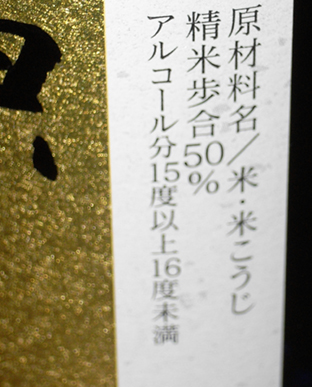 原材料名／米・米こうじ
精米歩合50%
アルコール分15度以上16度未満